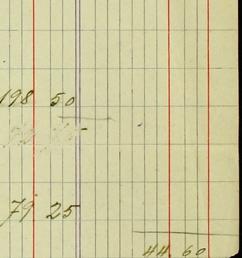 198 50
79 25
44 60